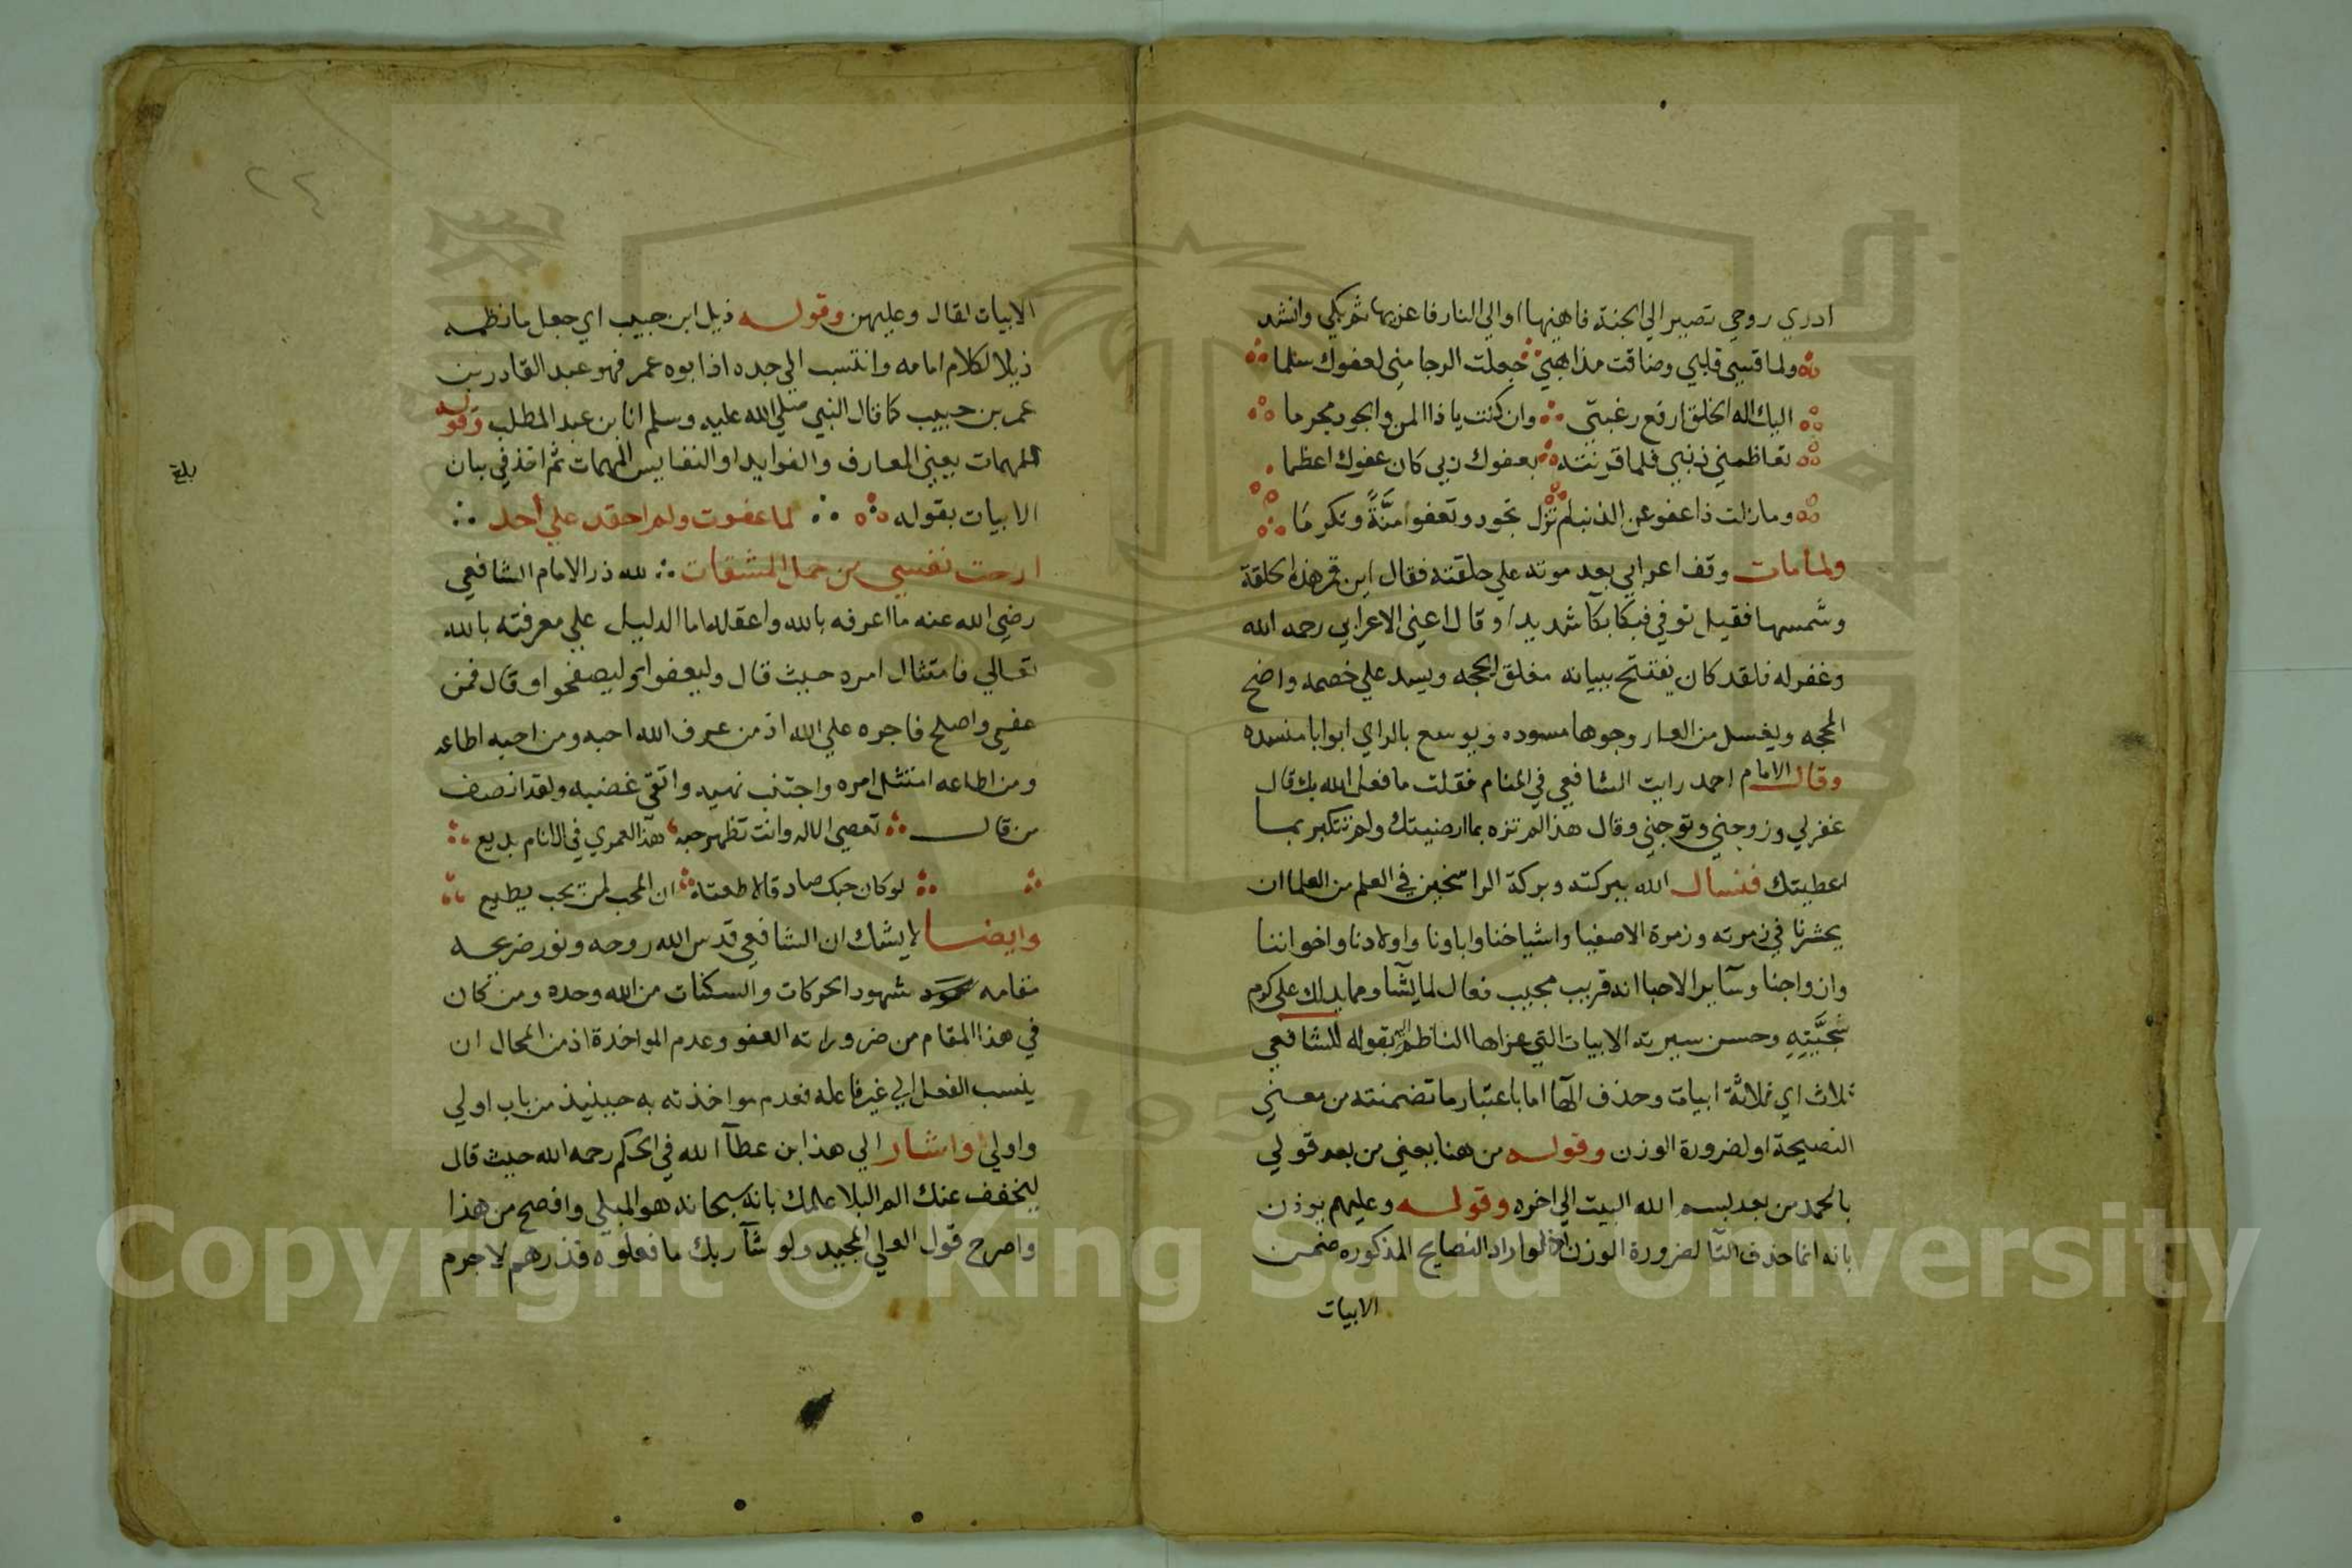 ادري روحي تصير الي الجنة فاهنيها او الي النار فاعزيها ثم بكي وانشد
ولما قسي قلبي وضاقت مذاهبي جعلت الرجا مني لعفوك سلما
اليك اله الخلق ارفع رغبتي وان كنت يا ذا المن والجود مجرما
تعاظمني ذنبي فلما قرنته بعفوك ربي كان عفوك اعظما
وما زلت ذا عفو عن الذنب لم تزل تجود وتعفو منَّةً وتكرما
ولما مات وقف اعرابي بعد موته علي حلقته فقال اين قمر هذه الحلقة
وشمسها فقيل توفي فبكا بكآ شديدا وقال اعني الاعرابي رحمه الله
وغفر له فلقد كان يفتتح ببيانه مغلق الحجه ويسد علي خصمه واضح
المحجه ويغسل من العار وجوها مسوده ويوسع بالراي ابوابا منسده
وقال الامام احمد رايت الشافعي في المنام فقلت ما فعل الله بك قال
غفر لي وزوجني وتوجني وقال هذا لم تزه بما ارضيتك ولم تتكبر بما
اعطيتك فنسال الله ببركته وبركة الراسخين في العلم من العلما ان
يحشرنا في زمرته وزمرة الاصفيا واشياخنا واباونا واولادنا واخواننا
وازواجنا وسآير الاحبا انه قريب مجيب فعال لما يشآ ومما يدلك علي كرم
سجيَّتِهِ وحسن سيرته الابيات التي عزاها الناظم اليه بقوله للشافعي
ثلاث اي ثلاثة ابيات وحذف الهآ اما باعتبار ما تضمنته من معني
النصيحة او لضرورة الوزن وقوله من هنا يعني من بعد قولي
بالحمد من بعد بسم الله البيت الي اخره وقوله وعليهم يوذن
بانه انما حذف التآ لضرورة الوزن اذ لو اراد النصايح المذكوره ضمن
الابيات
٢٤
الابيات لقال وعليهن وقوله ذيل ابن حبيب اي جعل ما نظمه
ذيلا لكلام امامه وانتسب الي جده اذ ابوه عمر فهو عبد القادر بن
عمر بن حبيب كما قال النبي صلي الله عليه وسلم انا بن عبد المطلب وقوله
المهمات يعني المعارف والفوايد او النفايس المهمات ثم اخذ في بيان
بلغ
الابيات بقوله لما عفوت ولم احقد علي أحد
ارحت نفسي من حمل المشقات لله در الامام الشافعي
رضي الله عنه ما اعرفه بالله واعقله اما الدليل علي معرفته بالله
تعالي فامتثال امره حيث قال وليعفوا وليصفحوا وقال فمن
عفي واصلح فاجره علي الله اذ من عرف الله احبه ومن احبه اطاعه
ومن اطاعه امتثل امره واجتنب نهيه واتقي غضبه ولقد انصف
من قال تعصي الاله وانت تظهر حبه هذا لعمري في الانام بديع
لو كان حبك صادقا لاطعته ان المحب لمن يحب يطيع
وايضا لا يشك ان الشافعي قدس الله روحه ونور ضريحه
مقامه شهود الحركات والسكنات من الله وحده ومن كان
في هذا المقام من ضروراته العفو وعدم المواخذة اذ من المحال ان
ينسب الفعل الي غير فاعله فعدم مواخذته به حينيذ من باب اولي
واولي واشار الي هذا ابن عطآ الله في الحكم رحمه الله حيث قال
ليخفف عنك الم البلا علمك بانه سبحانه هو المبلي وافصح من هذا
واصرح قول العلي المجيد ولو شآ ربك ما فعلوه فذرهم لا جرم
Copyright © King Saud University
1957